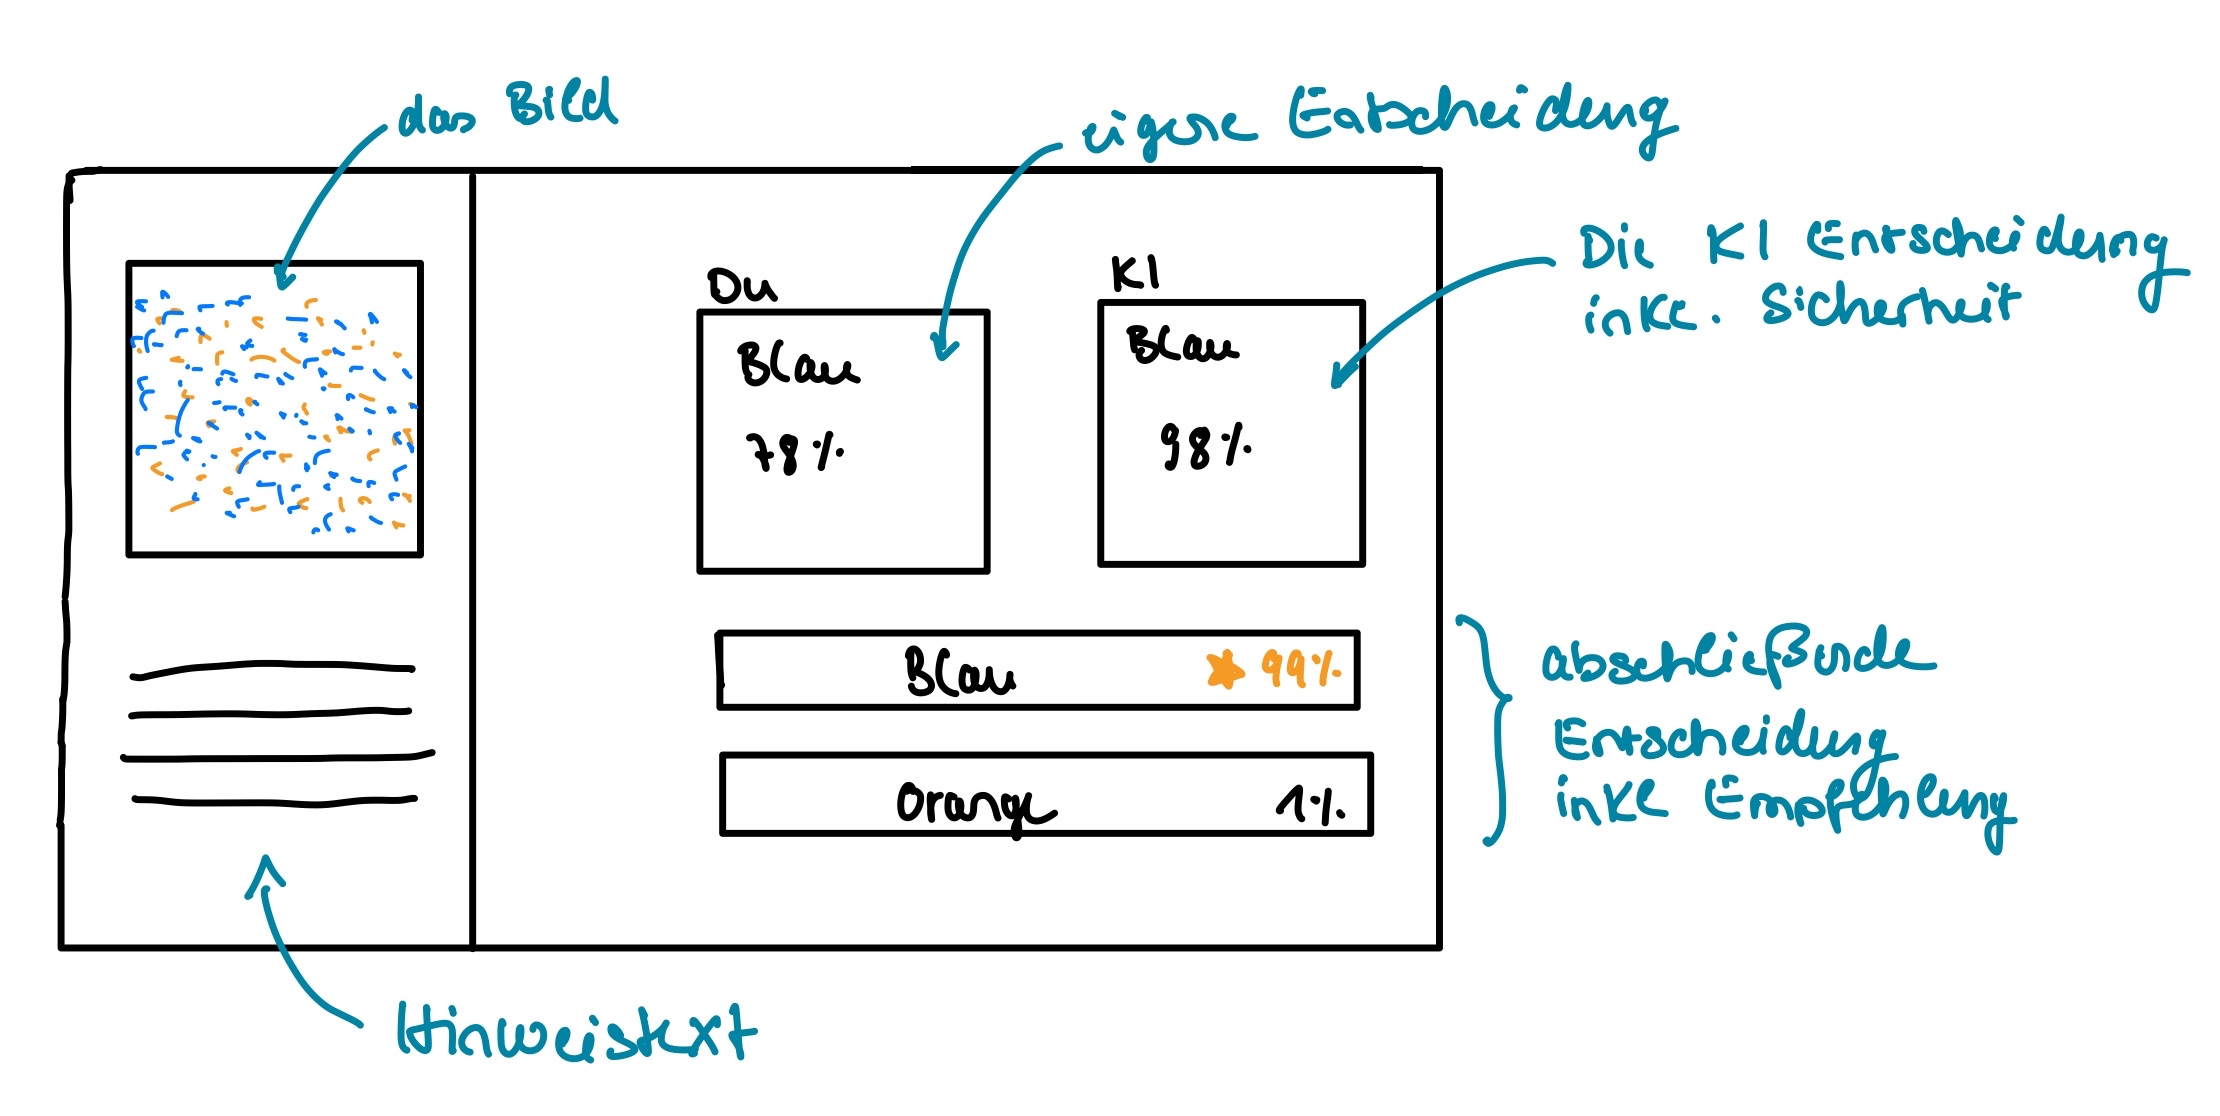 das Bild
eigene Entscheidung
Die KI Entscheidung
inkl. Sicherheit
Du
KI
Blau
78%
Blau
98%
Blau 99%
Orange 1%
abschließende
Entscheidung
inkl Empfehlung
Hinweistext